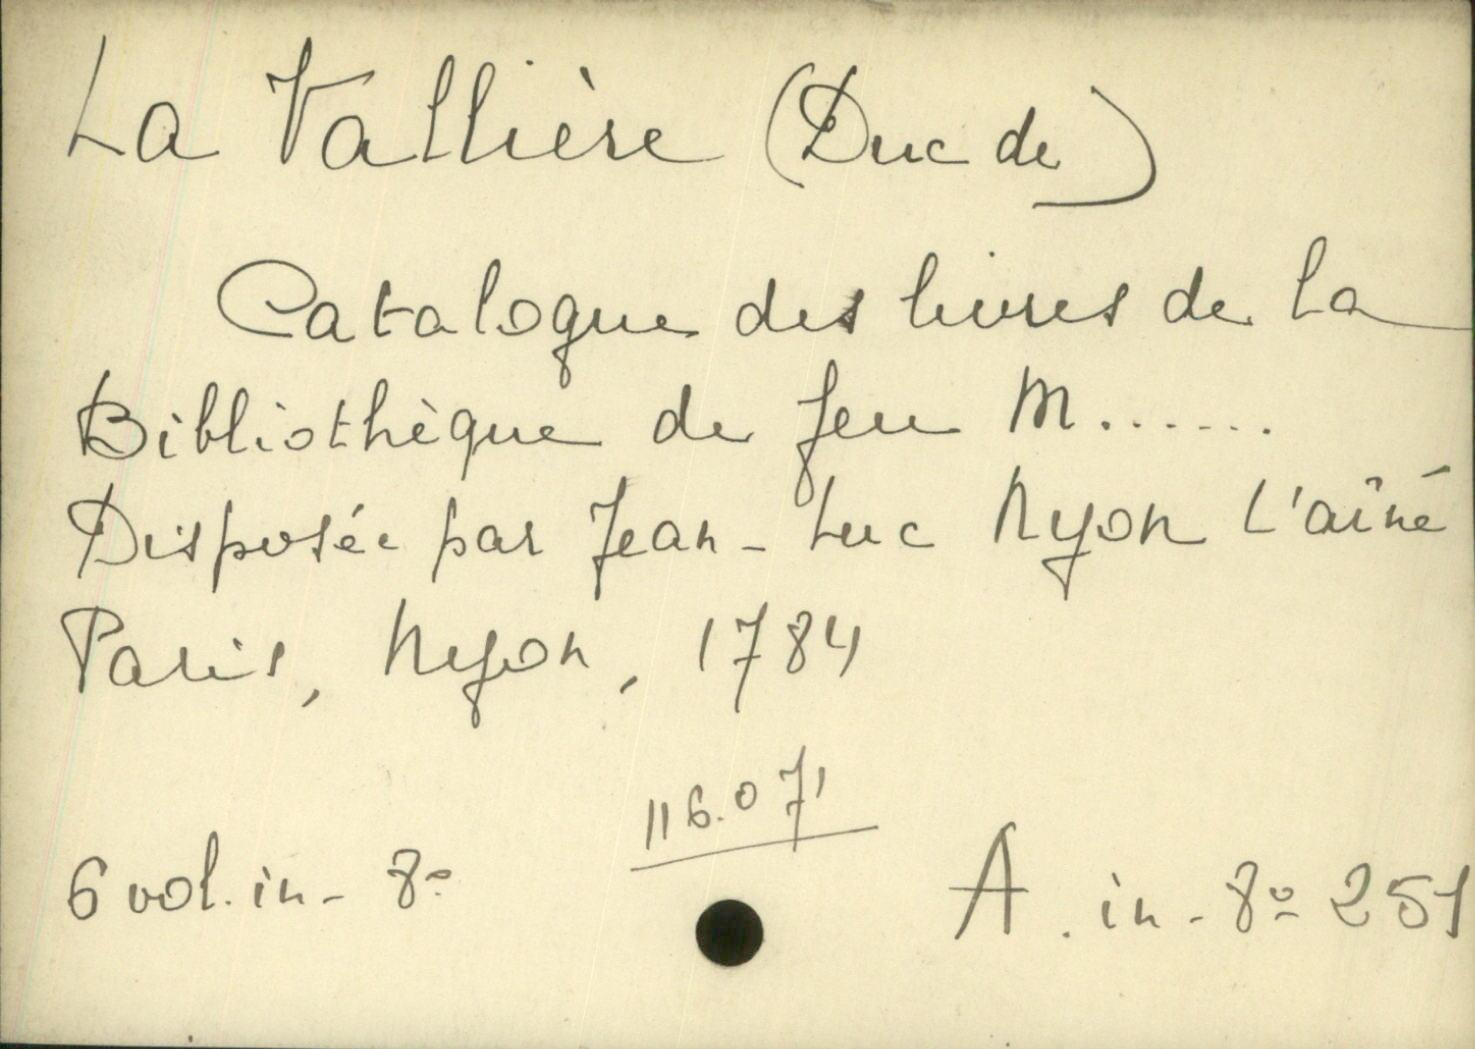 La Vallière (Duc de)
Catalogue des livres de la
Bibliothèque de feu M.......
Disposée par Jean-Luc Nyon l'aîné
Paris, Nyon, 1784
116.071
6 vol. in-8º
A. in-8º 251